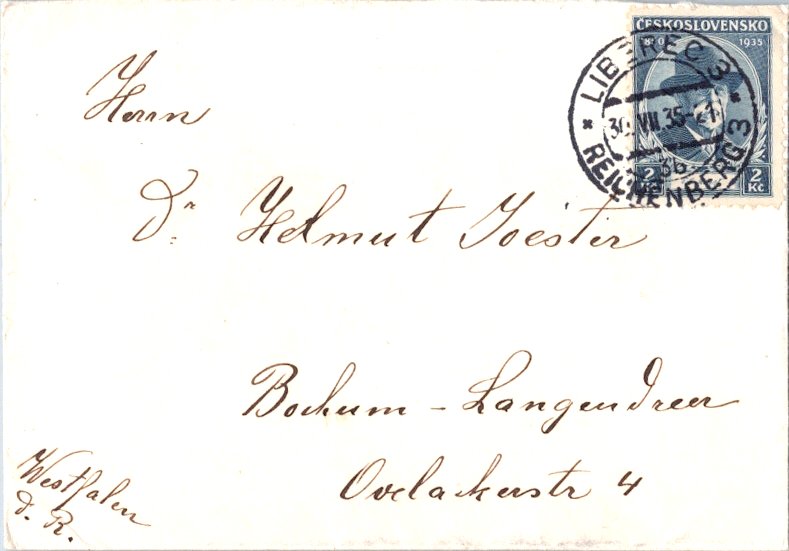 ČESKOSLOVENSKO
1935
LIBEREC 3
VII.35-21
REICHENBERG 3
2 2
Kč
Herrn
Dr Helmut Joester
Bochum - Langendreer
Ovelackerstr 4
Westfalen
d. R.